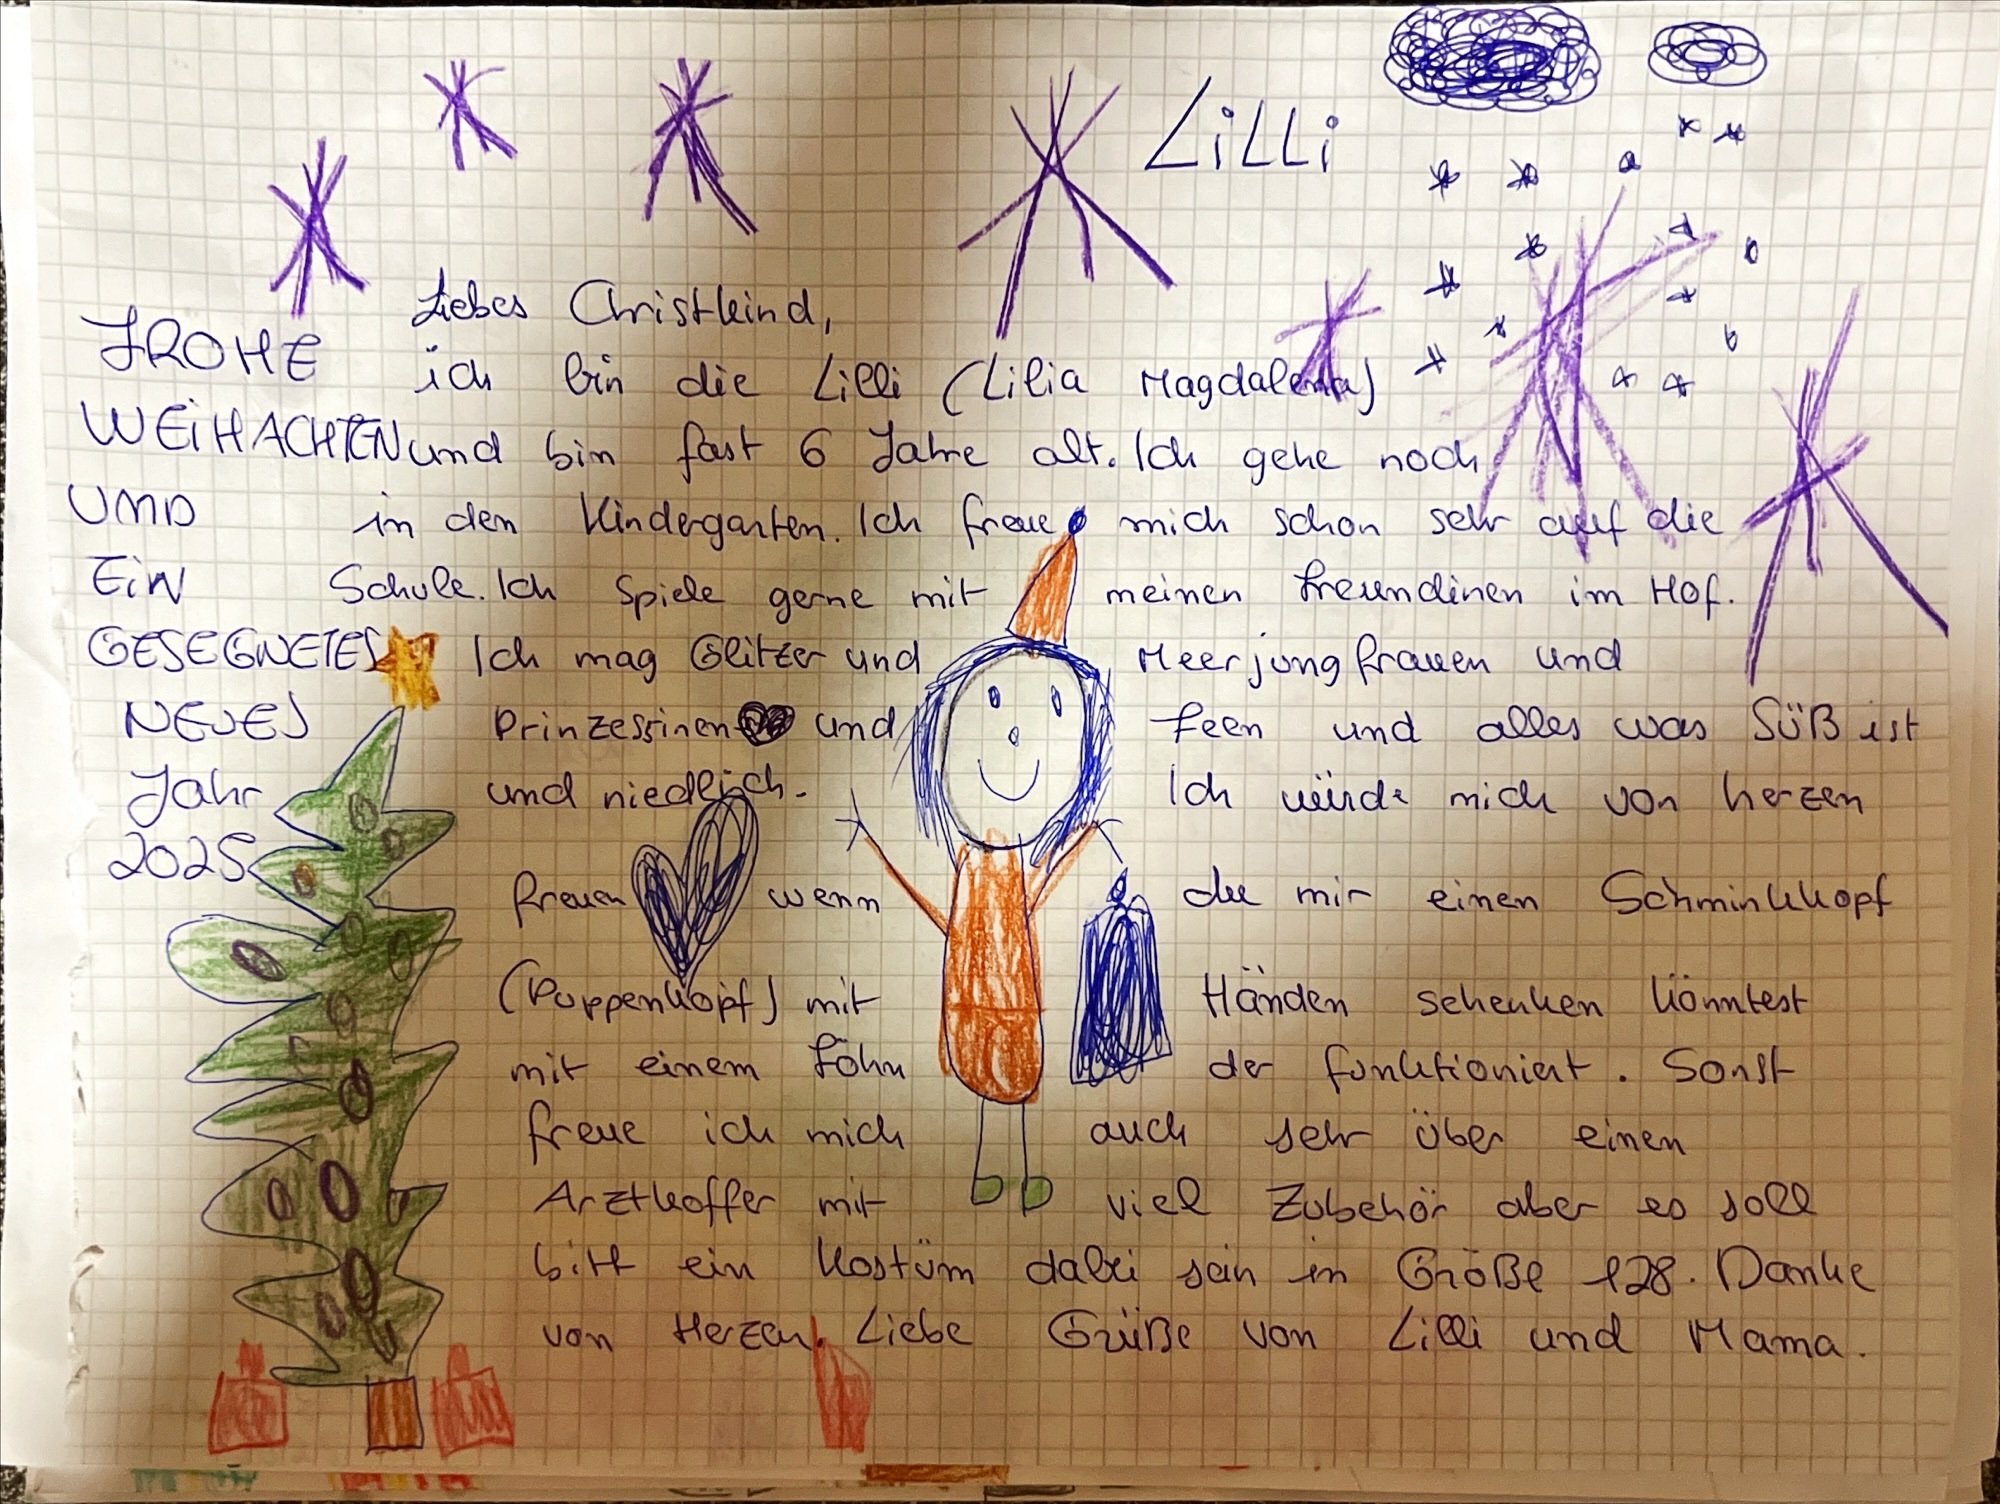 LiLLi
Liebes Christkind,
ich bin die Lilli (Lilia Magdalena)
und bin fast 6 Jahre alt. Ich gehe noch
in den Kindergarten. Ich freue mich schon sehr auf die
Schule. Ich spiele gerne mit meinen Freundinen im Hof.
Ich mag Glitzer und Meerjungfrauen und
Prinzessinen und Feen und alles was süß ist
und niedlich. Ich würde mich von herzen
freuen wenn du mir einen Schminkkopf
(Puppenkopf) mit Händen schenken könntest
mit einem Föhn der funktioniert. Sonst
freue ich mich auch sehr über einen
Arztkoffer mit viel Zubehör aber es soll
bitt ein Kostüm dabei sein in Größe 128. Danke
von Herzen. Liebe Grüße von Lilli und Mama.
FROHE
WEiHACHTEN
UND
EiN
GESEGNETES
NEUES
Jahr
2025